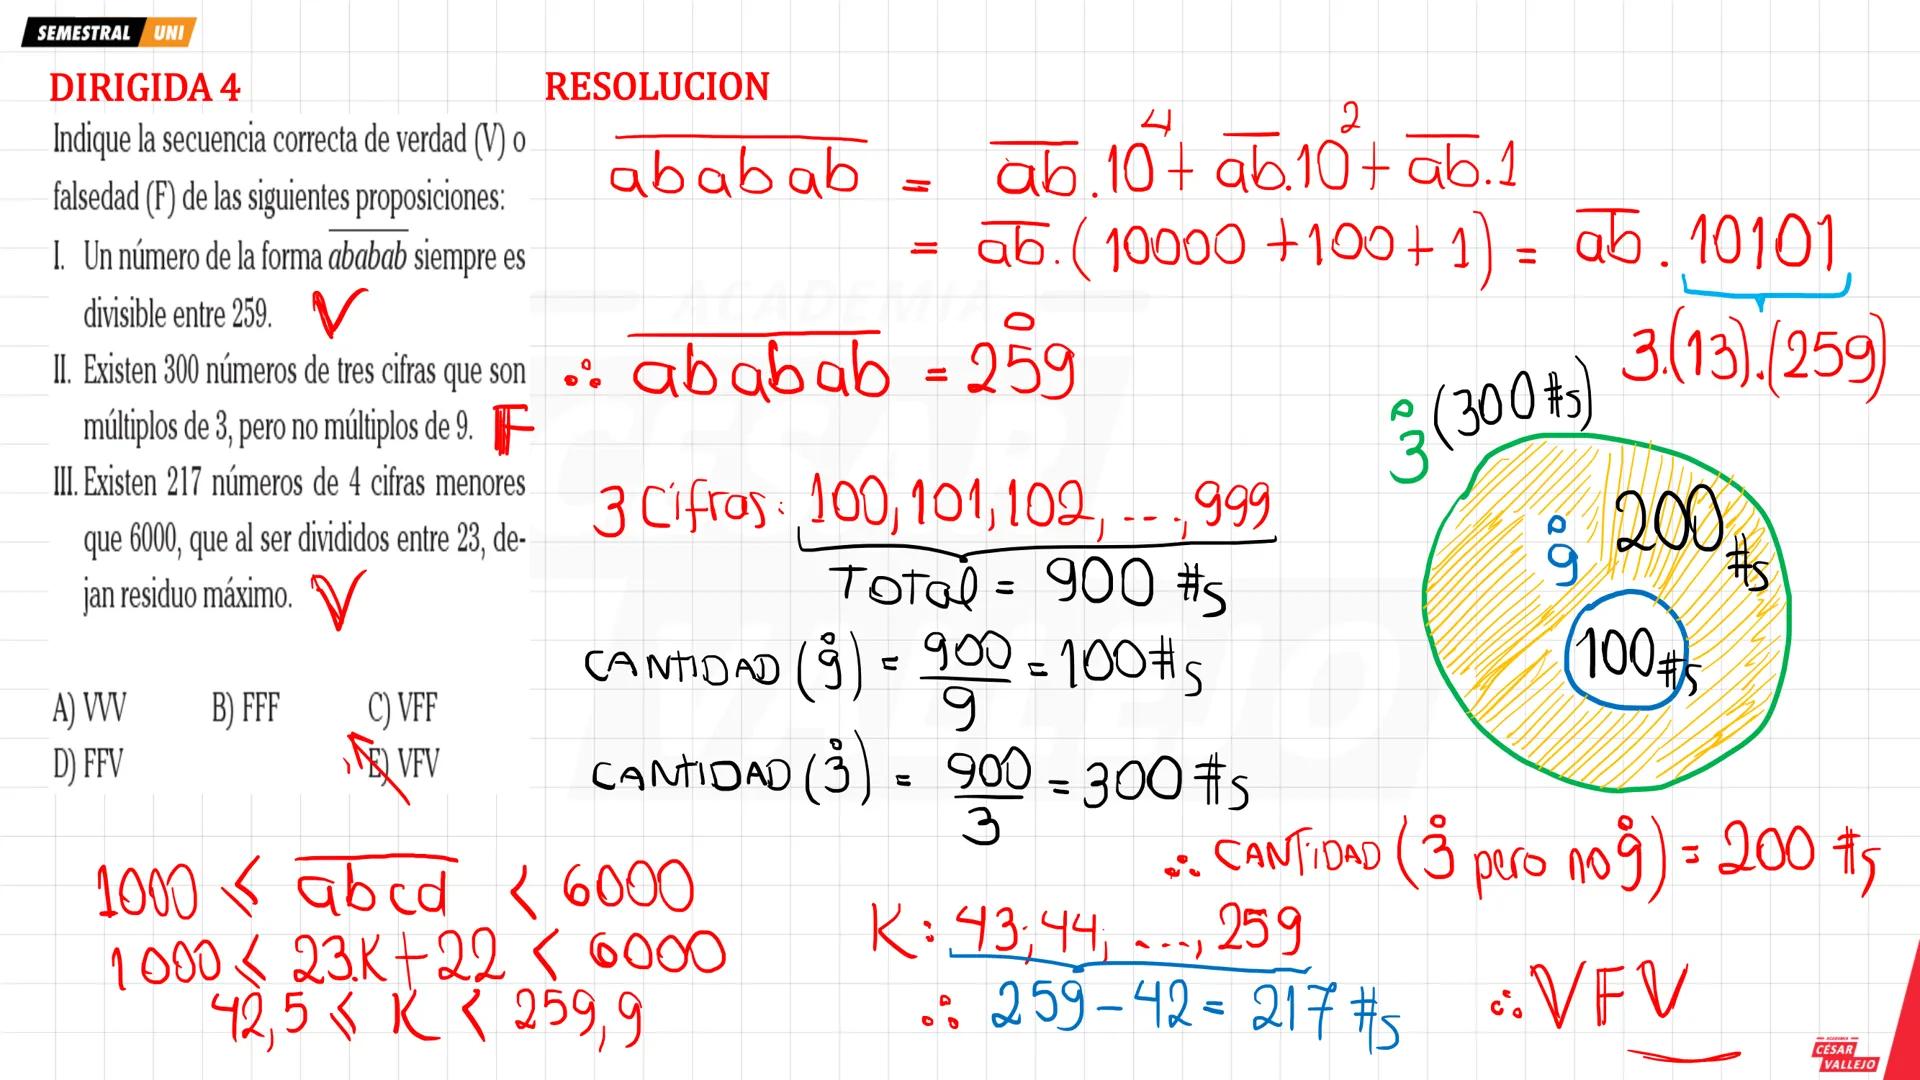 SEMESTRAL UNI
DIRIGIDA 4
Indique la secuencia correcta de verdad (V) o
falsedad (F) de las siguientes proposiciones:
I. Un número de la forma ababab siempre es
divisible entre 259. V
II. Existen 300 números de tres cifras que son
múltiplos de 3, pero no múltiplos de 9. F
III. Existen 217 números de 4 cifras menores
que 6000, que al ser divididos entre 23, de-
jan residuo máximo. V
A) VVV B) FFF C) VFF
D) FFV E) VFV
1000 ≤ abcd < 6000
1000 ≤ 23.K+22 < 6000
42,5 ≤ K < 259,9
RESOLUCION
ababab = ab.10⁴+ ab.10²+ ab.1
= ab.(10000+100+1) = ab.10101
3.(13).(259)
∴ ababab = 259°
3 Cifras: 100,101,102,...,999
Total = 900 #s
CANTIDAD (9°) = 900/9 = 100#s
CANTIDAD (3°) = 900/3 = 300 #s
3° (300 #s)
9° 200 #s
100 #s
∴ CANTIDAD (3° pero no 9°) = 200 #s
K: 43; 44; ...; 259
∴ 259-42 = 217 #s
∴ VFV
ACADEMIA
CÉSAR
VALLEJO